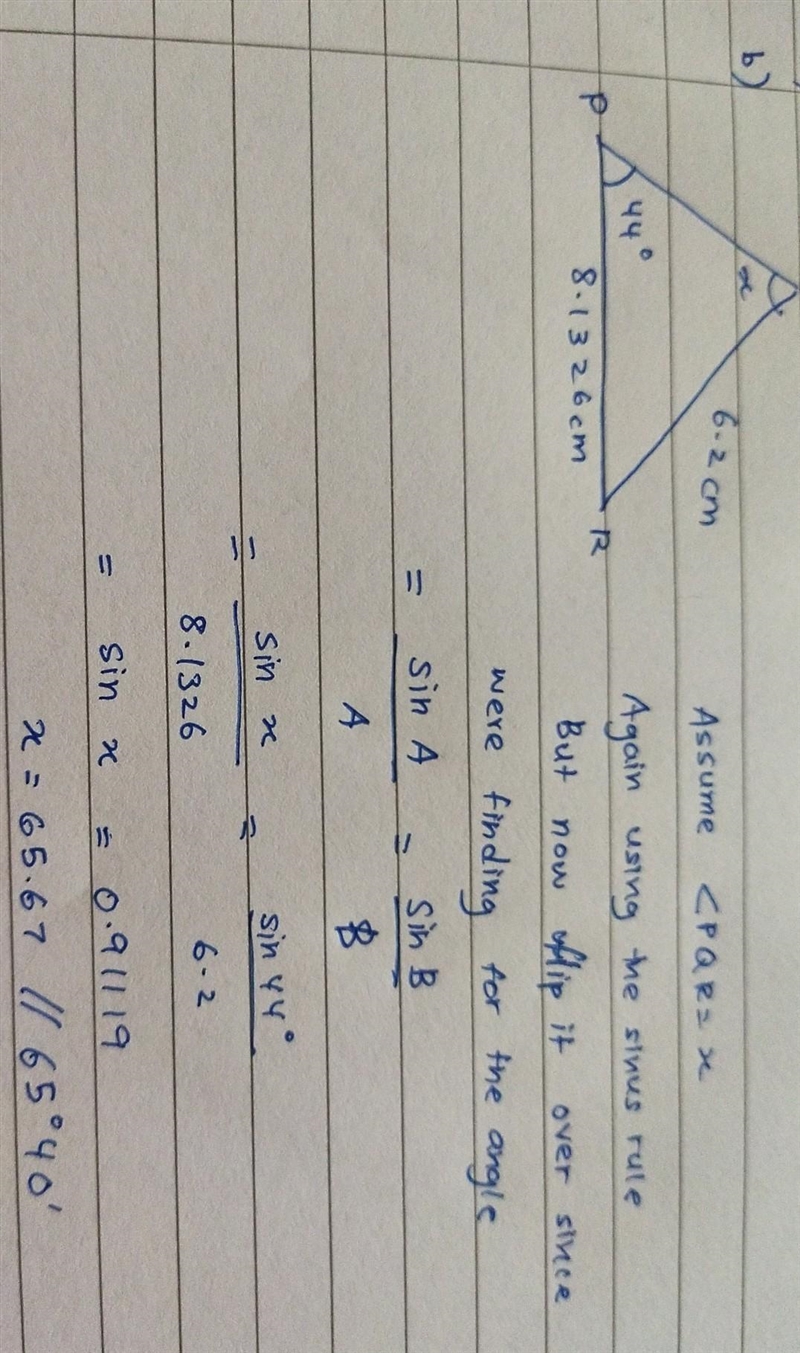 b)
x
6.2 cm
P
44°
8.1326cm
R
Assume <PQR = x
Again using the sinus rule
But now flip it over since
were finding for the angle
= sin A = sin B
A B
= sin x = sin 44°
8.1326 6.2
= sin x = 0.91119
x = 65.67 // 65°40'